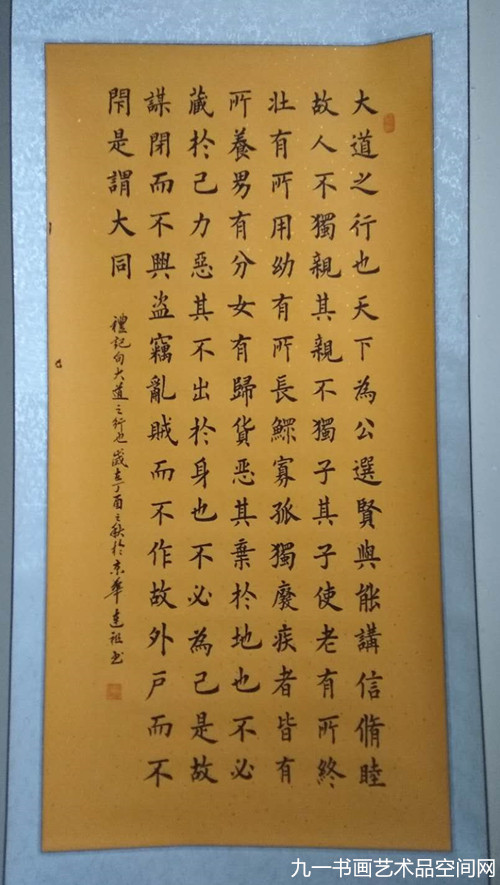 大道之行也天下為公選賢與能講信脩睦
故人不獨親其親不獨子其子使老有所終
壯有所用幼有所長鰥寡孤獨廢疾者皆有
所養男有分女有歸貨恶其棄於地也不必
藏於己力惡其不出於身也不必為己是故
謀閉而不興盜竊亂賊而不作故外戶而不
閇是謂大同
禮記句大道之行也歲在丁酉之秋於京華祖书
九一书画艺术品空间网